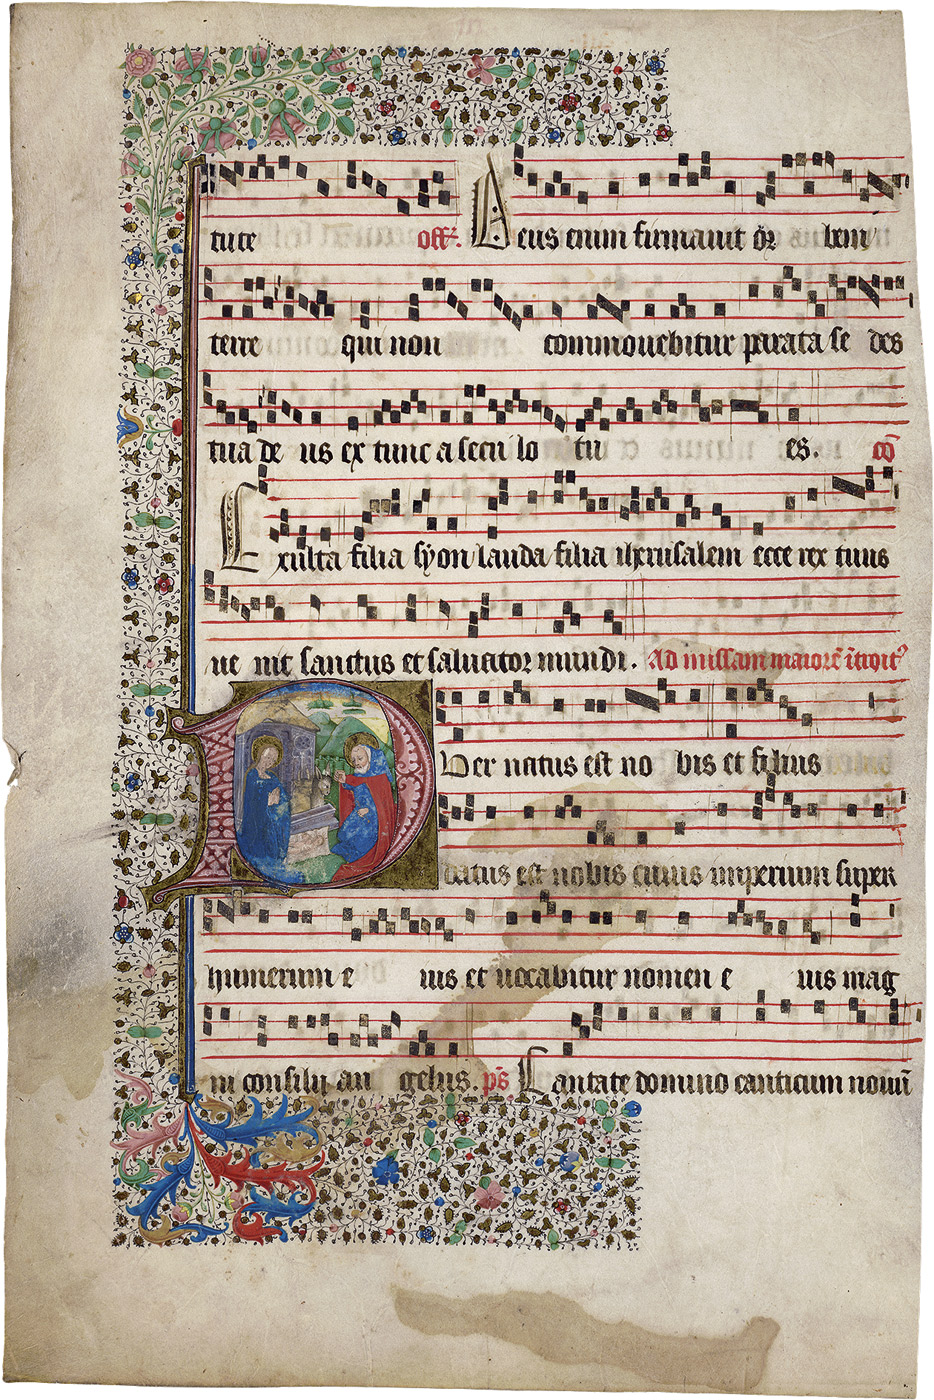 tute offr. Deus enim firmavit orbem
terre qui non commovebitur parata sedes
tua deus ex tunc a seculo tu es. co
Exulta filia syon lauda filia iherusalem ecce rex tuus
venit sanctus et salvator mundi. Ad missam maiorē ītroit
Puer natus est nobis et filius
datus est nobis cuius imperium super
humerum eius et vocabitur nomen eius mag
ni consilij angelus. ps Cantate domino canticum novū